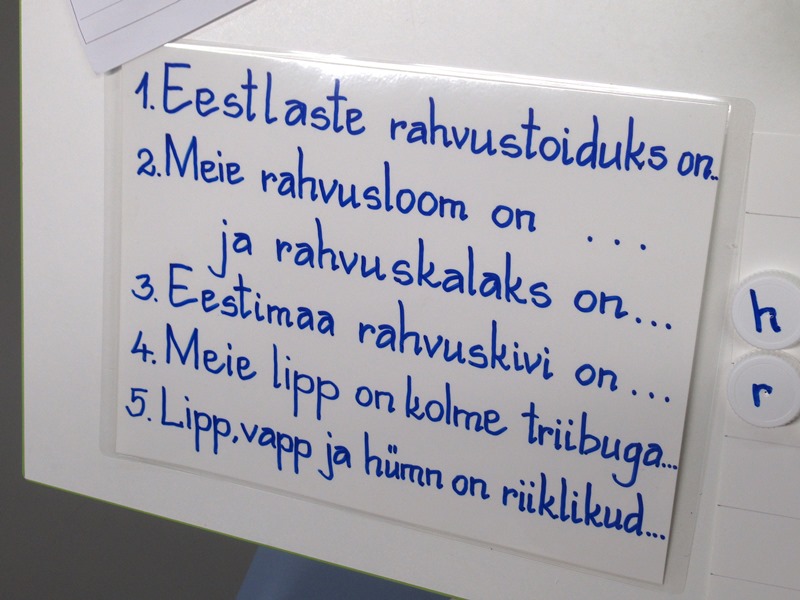 1. Eestlaste rahvustoiduks on..
2. Meie rahvusloom on ...
ja rahvuskalaks on...
3. Eestimaa rahvuskivi on...
4. Meie lipp on kolme triibuga...
5. Lipp, vapp ja hümn on riiklikud...
h
r